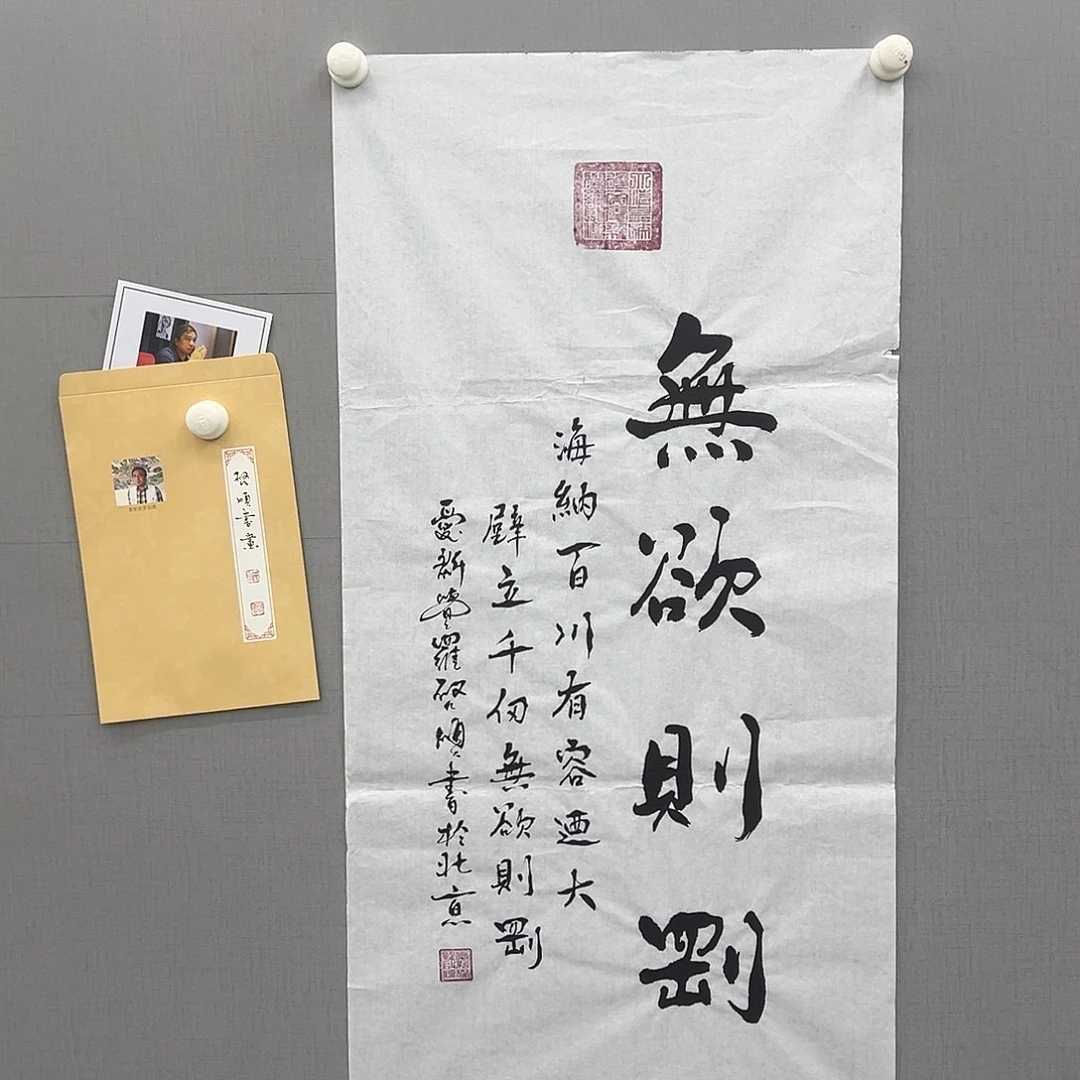 無欲則剛
海納百川有容迺大
壁立千仞無欲則剛
愛新覺羅啓順書於北京
啓順書畫